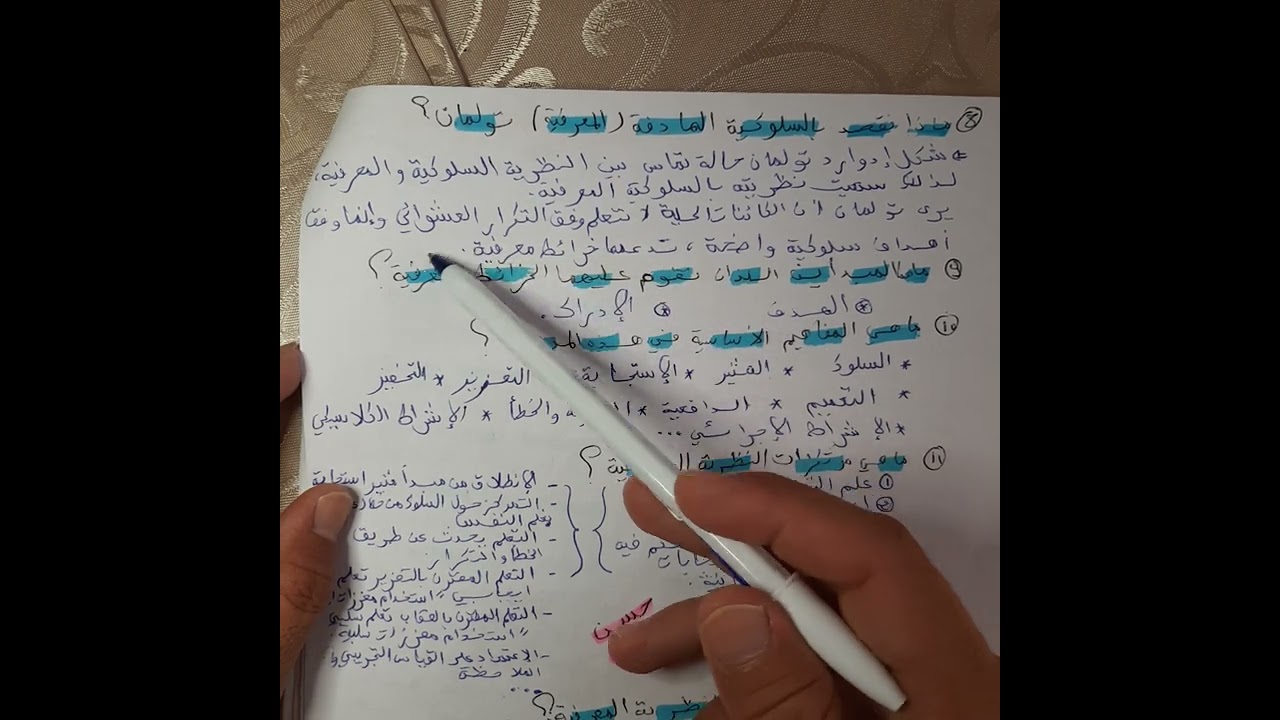 ⑧ ماذا نقصد بالسلوكية الهادفة (المعرفية) تولمان؟
شكل إدوارد تولمان حالة تماس بين النظرية السلوكية والمعرفية،
لذلك سميت نظريته بالسلوكية المعرفية.
يرى تولمان أن الكائنات الحية لا تتعلم وفق التكرار العشوائي وإنما وفق
أهداف سلوكية واضحة، تدعمها خرائط معرفية.
⑨ ما المبدأين اللذان تقوم عليهما الخرائط ؟
* الهدف * الإدراك.
⑩ ما هي المفاهيم الأساسية في هذه ؟
* السلوك * المثير * الإستجابة * التعزيز * التحفيز
* التقييم * الدافعية * والخطأ * الإشراط الكلاسيكي
* الإشراط الإجرائي ...
⑪ ما هي مرتكزات النظرية ؟
① علم
②
فيه
- الإنطلاق من مبدأ مثير استجابة
- التمركز حول السلوك من
علم النفس
- التعلم يحدث عن طريق
الخطأ والتكرار
- التعلم المقترن بالتعزيز تعلم
إيجابي "استخدام معززات
- التعلم المقترن بالعقاب تعلم سلبي
"استخدام معززات سلبية"
- الإعتماد على القياس التجريبي و
الملاحظة
...
حسن
المعرفية؟